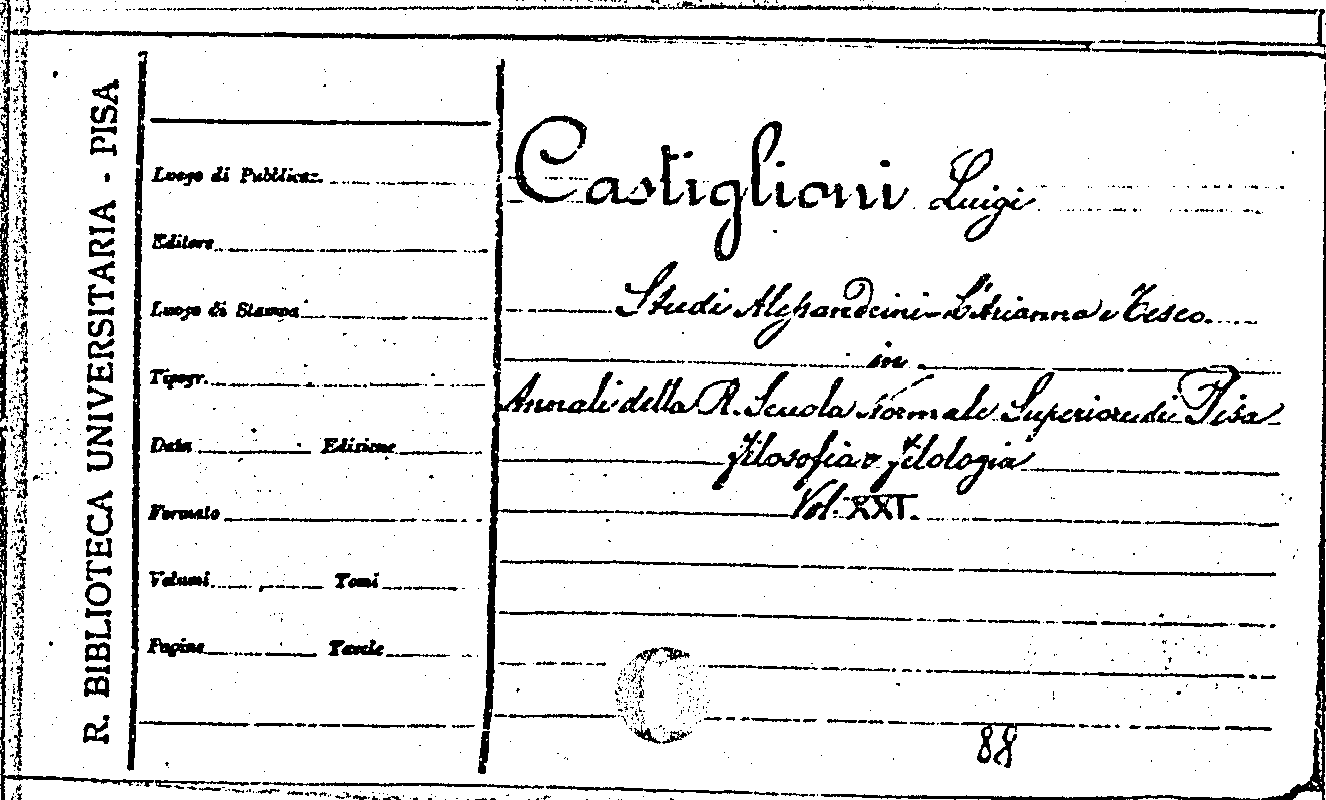 R. BIBLIOTECA UNIVERSITARIA - PISA
Luogo di Pubblicaz.
Editore
Luogo di Stampa
Tipogr.
Data Edizione
Formato
Volumi Tomi
Pagine Tavole
Castiglioni Luigi
Studi Alessandrini - L'Arianna e Teseo.
in
Annali della R. Scuola Normale Superiore di Pisa
Filosofia e Filologia
Vol. XXI.
88